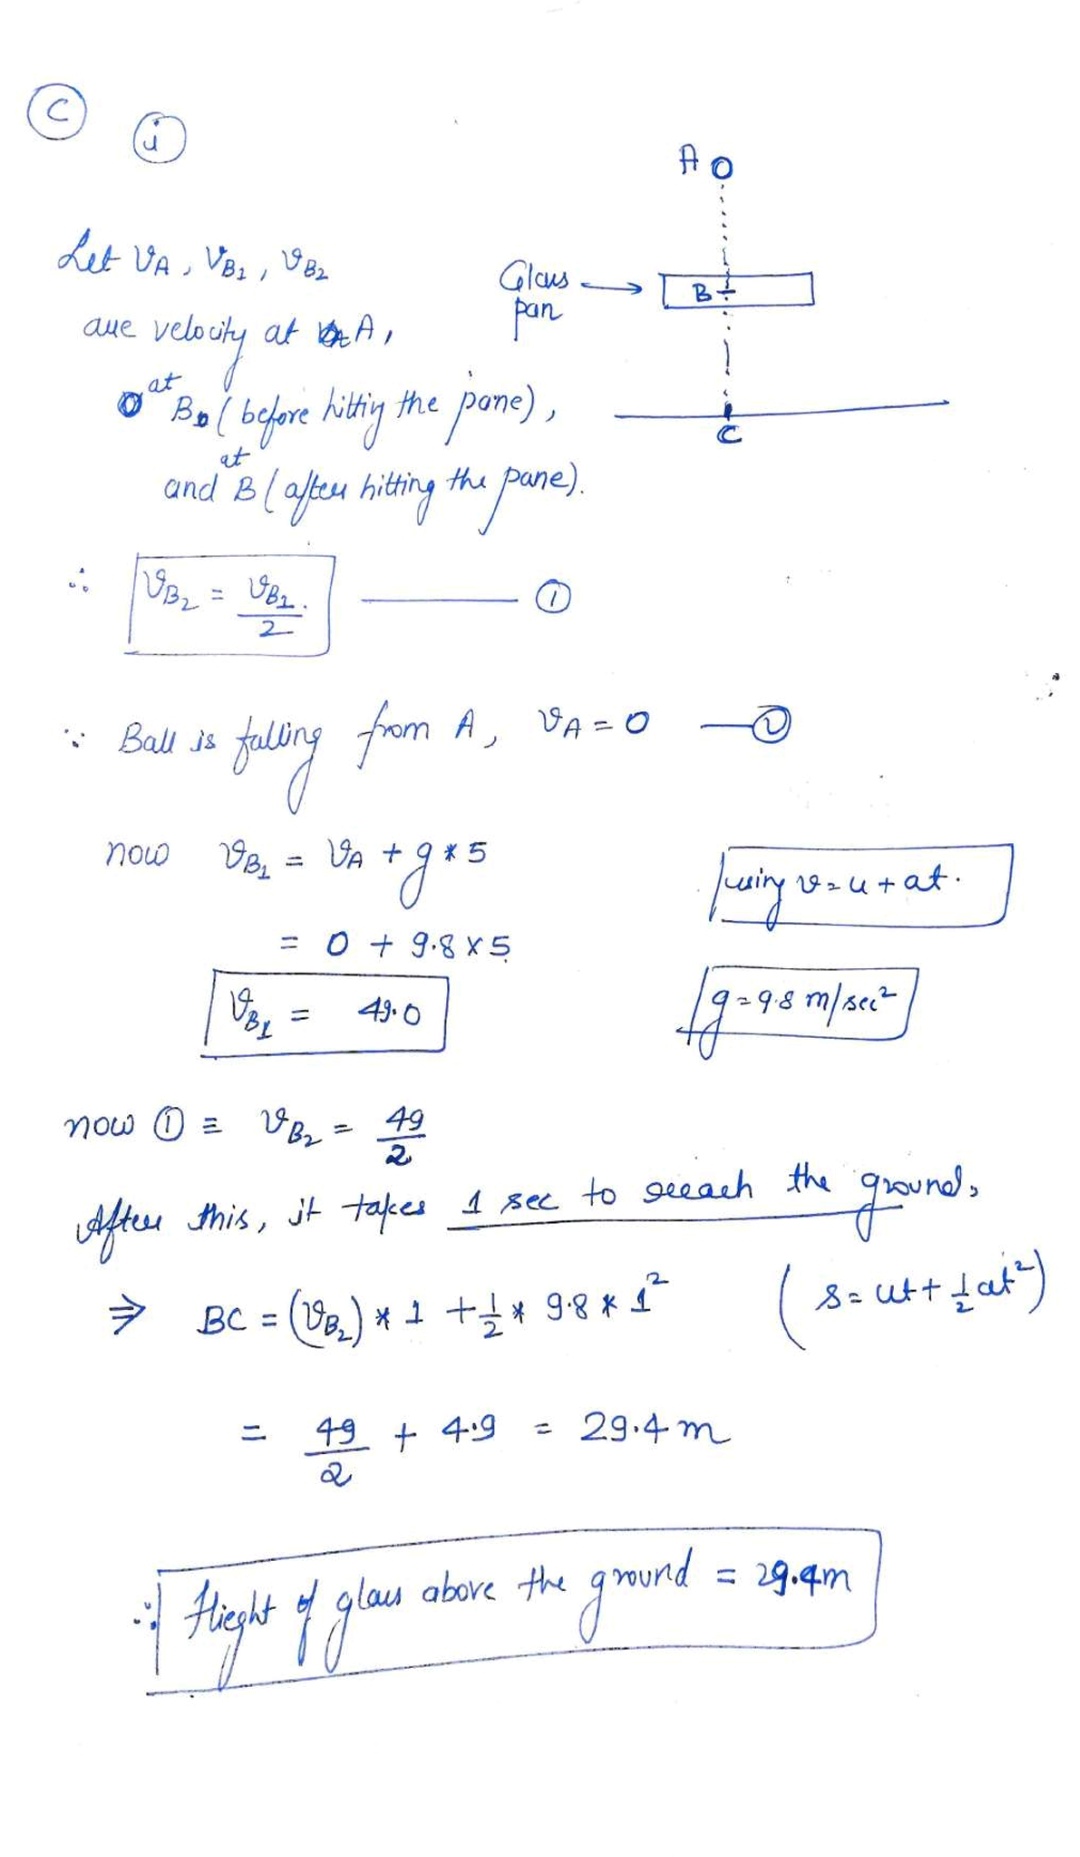 C
i
A
Let VA, VB1, VB2
Glass pan
B
are velocity at A,
at B (before hittig the pane),
C
and at B (after hitting the pane).
∴ VB2 = VB1/2 —— ①
∵ Ball is falling from A, VA = 0 —②
now VB1 = VA + g * 5
using v = u + at.
= 0 + 9.8 x 5
VB1 = 49.0
g = 9.8 m/sec²
now ① ≡ VB2 = 49/2
After this, it takes 1 sec to reach the ground,
⇒ BC = (VB2) * 1 + 1/2 * 9.8 * 1² (s = ut + 1/2 at²)
= 49/2 + 4.9 = 29.4 m
∴ Hieght of glass above the ground = 29.4m